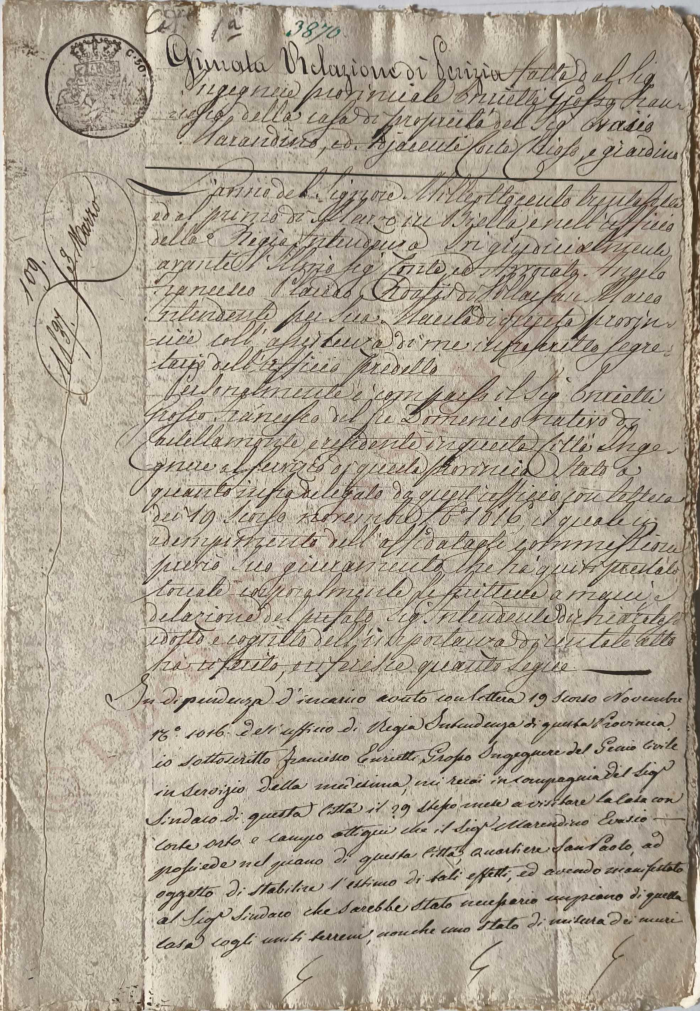 1ª
3870
C. 50
Giurata Relazione di Perizia fatta dal Sig.
Ingegnere provinciale Enrietti Grosso Fran-
cesco, della casa di proprietà del Sig. Evasio
Marandino, ed adjacente Corte, e giardino
L'anno del Signore Mille ottocento trenta
ed al primo di Marzo in Biella, e nell'ufficio
della Regia Intendenza giudicialmente
avanti l' Sig. Conte, ed Avvocato Angelo
Francesco
Intendente per Sua Maestà di questa provin-
cia coll' assistenza di me infrascritto Segre-
tario dell'ufficio Predetto
Personalmente è comparso il Sig. Enrietti
Grosso Francesco del fu Domenico nativo di
Castellamonte e residente in questa Città, Inge-
gnere al servizio di questa Provincia Stato a
quanto infra delegato da quest'ufficio con lettera
dei 19 scorso novembre Nº 1016, il quale in
adempimento dell' affidatagli commissione
previo suo giuramento che ha quivi prestato
toccate corporalmente le scritture a mani, e
delazione del prefato Sig. Intendente
edotto e cognito dell'importanza di un tale atto
ha riferito, e riferisce quanto segue
In dipendenza d'incarico avuto con lettera 19 scorso Novembre
Nº 1016. dell'uffizio di Regia Intendenza di questa Provincia,
io sottoscritto Francesco Enrietti Grosso Ingegnere del Genio Civile
in servizio della medesima, mi recai in compagnia del Sigr
Sindaco di questa Città il 29 stesso mese a visitare la Casa con
corte orto e campo attigui che il Sigr Marandino Evasio
possiede nel piano di questa Città, Quartiere San Paolo, ad
oggetto di stabilire l'estimo di tali effetti, ed avendo manifestato
al Sigr Sindaco che sarebbe stato necessario un piano di quella
casa cogli uniti terreni, nonche uno stato di misura dei muri
109.
1497.
li 3. Marzo